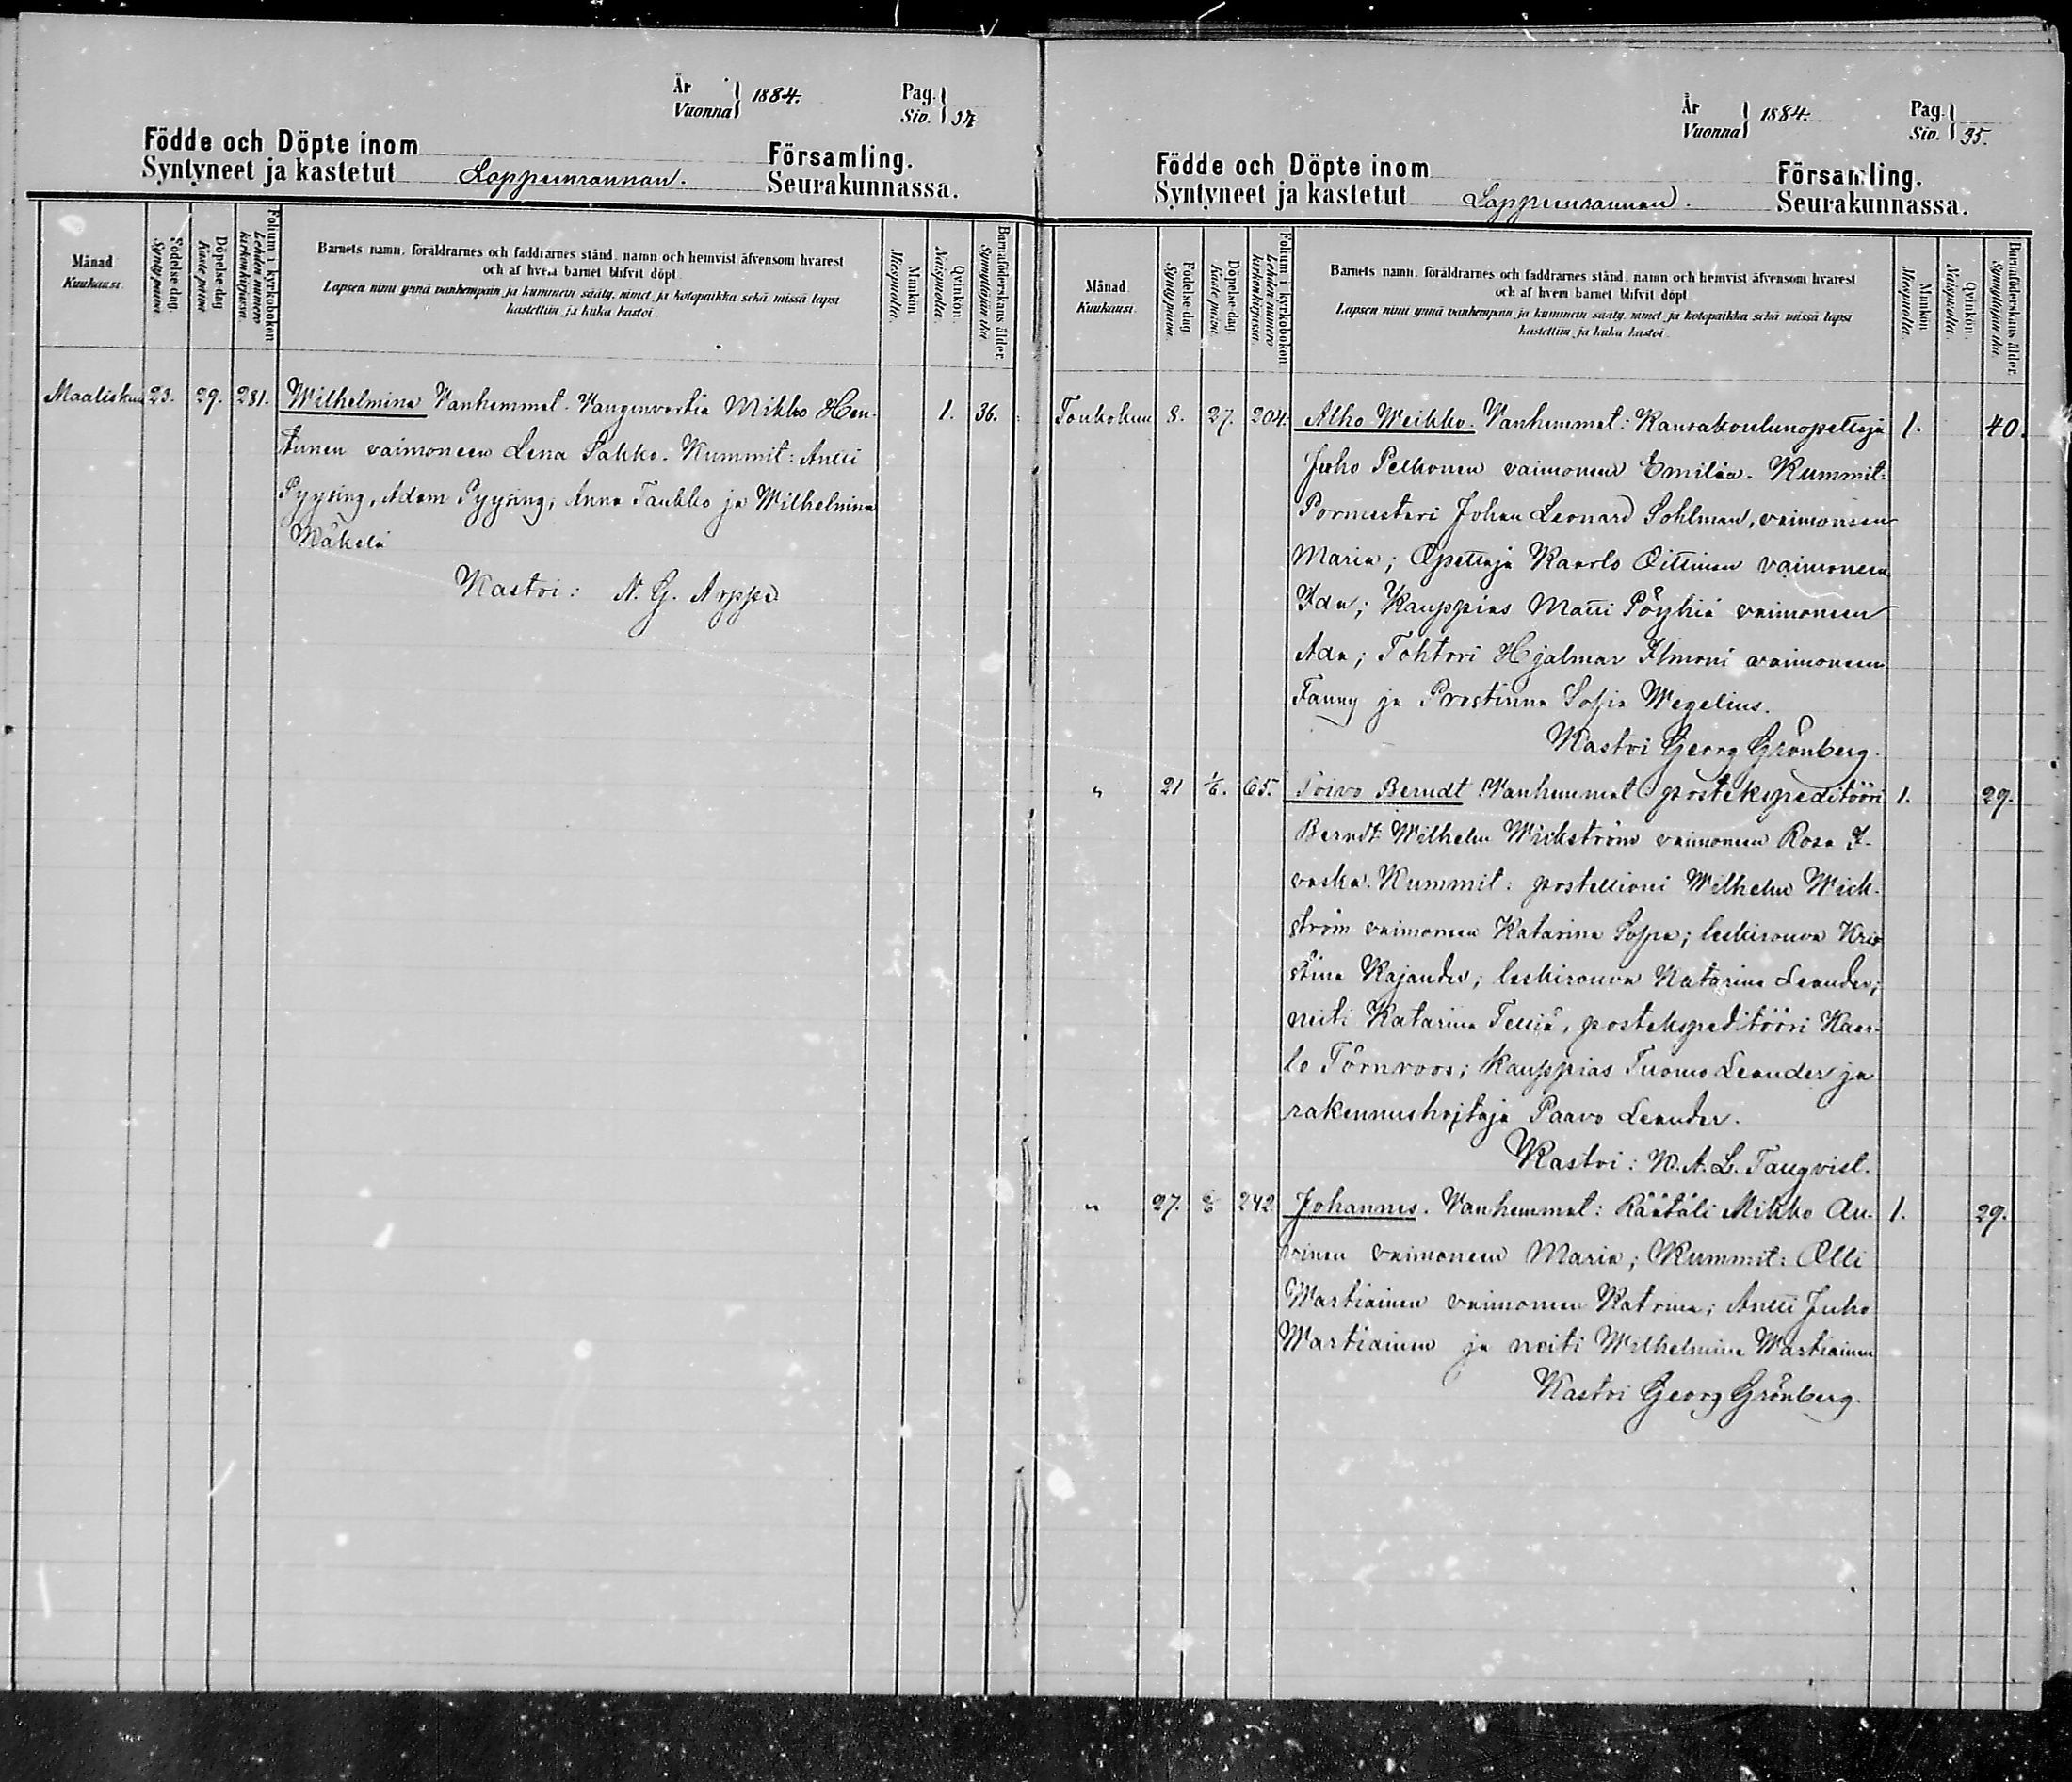 År
Vuonna } 1884.
Pag.
Siv. } 34
Födde och Döpte inom Församling.
Syntyneet ja kastetut Lappeenrannan. Seurakunnassa.
Månad
Kuukausi.
Födelse-dag.
Syntypäivä.
Döpelse-dag
Kastepäivä
Folium i kyrkoboken
Lehden numero
kirkonkirjassa.
Barnets namn, föräldrarnes och faddrarnes stånd, namn och hemvist äfvensom hvarest
och af hvem barnet blifvit döpt.
Lapsen nimi ynnä vanhempain ja kummein sääty, nimet ja kotopaikka sekä missä lapsi
kastettiin ja kuka kastoi.
Mankön.
Miespuolia.
Qvinkön.
Naispuolia.
Barnaföderskans ålder.
Synnyttäjän ikä.
Maaliskuu 23. 29. 281. Wilhelmina Vanhemmat. Vanginvartia Mikko Hen- 1. 36.
tunen vaimoneen Lena Sakko. Kummit: Antti
Pyysing, Adam Pyysing, Anna Taukko ja Wilhelmina
Mäkelä
Kastoi: N. G. Arppe
År
Vuonna } 1884.
Pag.
Siv. } 35.
Födde och Döpte inom Församling.
Syntyneet ja kastetut Lappeenrannan. Seurakunnassa.
Månad
Kuukausi.
Födelse-dag
Syntypäivä.
Döpelse-dag
Kastepäivä.
Folium i kyrkoboken
Lehden numero
kirkonkirjassa.
Barnets namn, föräldrarnes och faddrarnes stånd, namn och hemvist äfvensom hvarest
och af hvem barnet blifvit döpt.
Lapsen nimi ynnä vanhempain ja kummein sääty, nimet ja kotopaikka sekä missä lapsi
kastettiin ja kuka kastoi.
Mankön
Miespuolia.
Qvinkön.
Naispuolia.
Barnaföderskans ålder.
Synnyttäjän ikä.
Toukokuu 8. 27. 204. Alho Weikko. Vanhemmat: Kansakoulunopettaja 1. 40.
Juho Pelkonen vaimoneen Emilia. Kummit:
Pormestari Johan Leonard Sohlman, vaimoneen
Maria; Opettaja Kaarlo Oittinen vaimoneen
Ida; Kauppias Matti Pöyhiä vaimoneen
Ada; Tohtori Hjalmar Ilmoni vaimoneen
Fanny ja Prostinna Sofia Wegelius.
Kastoi Georg Grönberg.
" 21 1/6. 65. Toivo Berndt Vanhemmat postekspeditööri 1. 29.
Berndt Wilhelm Wickström vaimoneen Rosa I-
vaska. Kummit: postellioni Wilhelm Wick-
ström vaimoneen Katarina Sofia; leskirouva Kris-
tina Kajander; leskirouva Katarina Leander;
neiti Katarina Telliä, postekspeditööri Kaar-
lo Törnroos; Kauppias Tuomo Leander ja
rakennushoitaja Paavo Leander.
Kastoi: K. A. L. Tanqvist.
" 27. 242. Johannes. Vanhemmat: Räätäli Mikko Au- 1. 29.
vinen vaimoneen Maria; Kummit: Olli
Wartiainen vaimoneen Katrina; Antti Juho
Wartiainen ja neiti Wilhelmina Wartiainen
Kastoi Georg Grönberg.